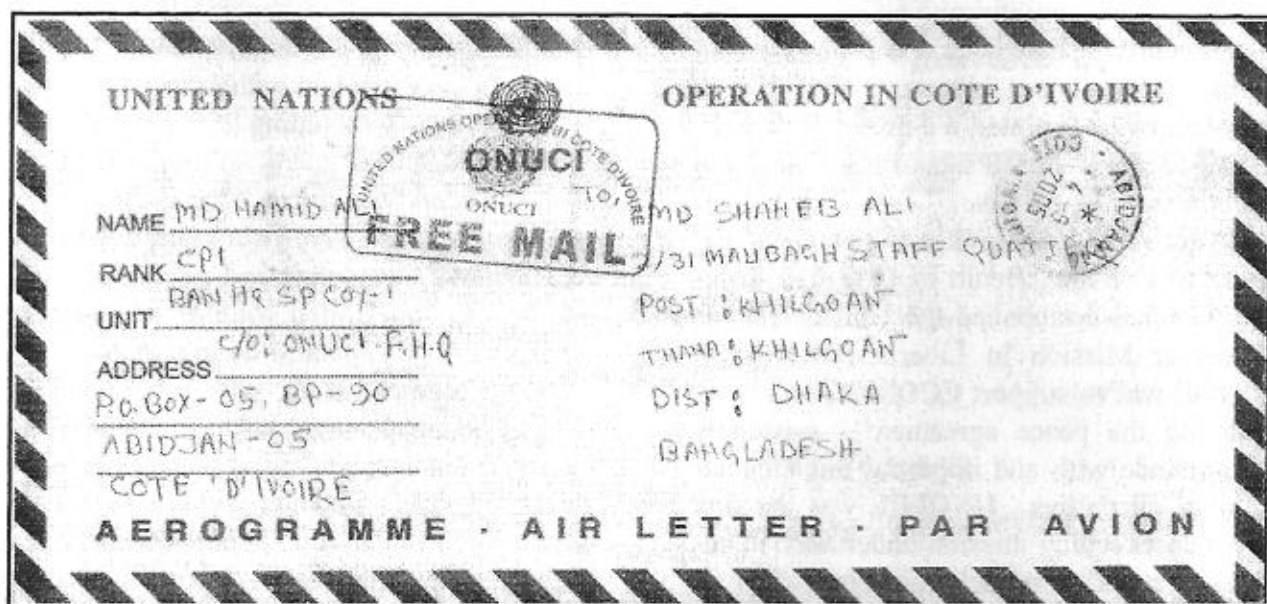 UNITED NATIONS OPERATION IN COTE D'IVOIRE
UNITED NATIONS OPERATION IN COTE D'IVOIRE
ONUCI
ONUCI
FREE MAIL
NAME MD HAMID ALI
RANK CPL
BAN HQ SP COY-1
UNIT
C/O: ONUCI F.H.Q
ADDRESS
P.O. BOX - 05, BP - 90
ABIDJAN - 05
COTE 'D'IVOIRE
ABIDJAN
MD SHAHEB ALI
/31 MALIBAGH STAFF QUATTER
POST : KHILGOAN
THANA : KHILGOAN
DIST : DHAKA
BANGLADESH
AEROGRAMME - AIR LETTER - PAR AVION